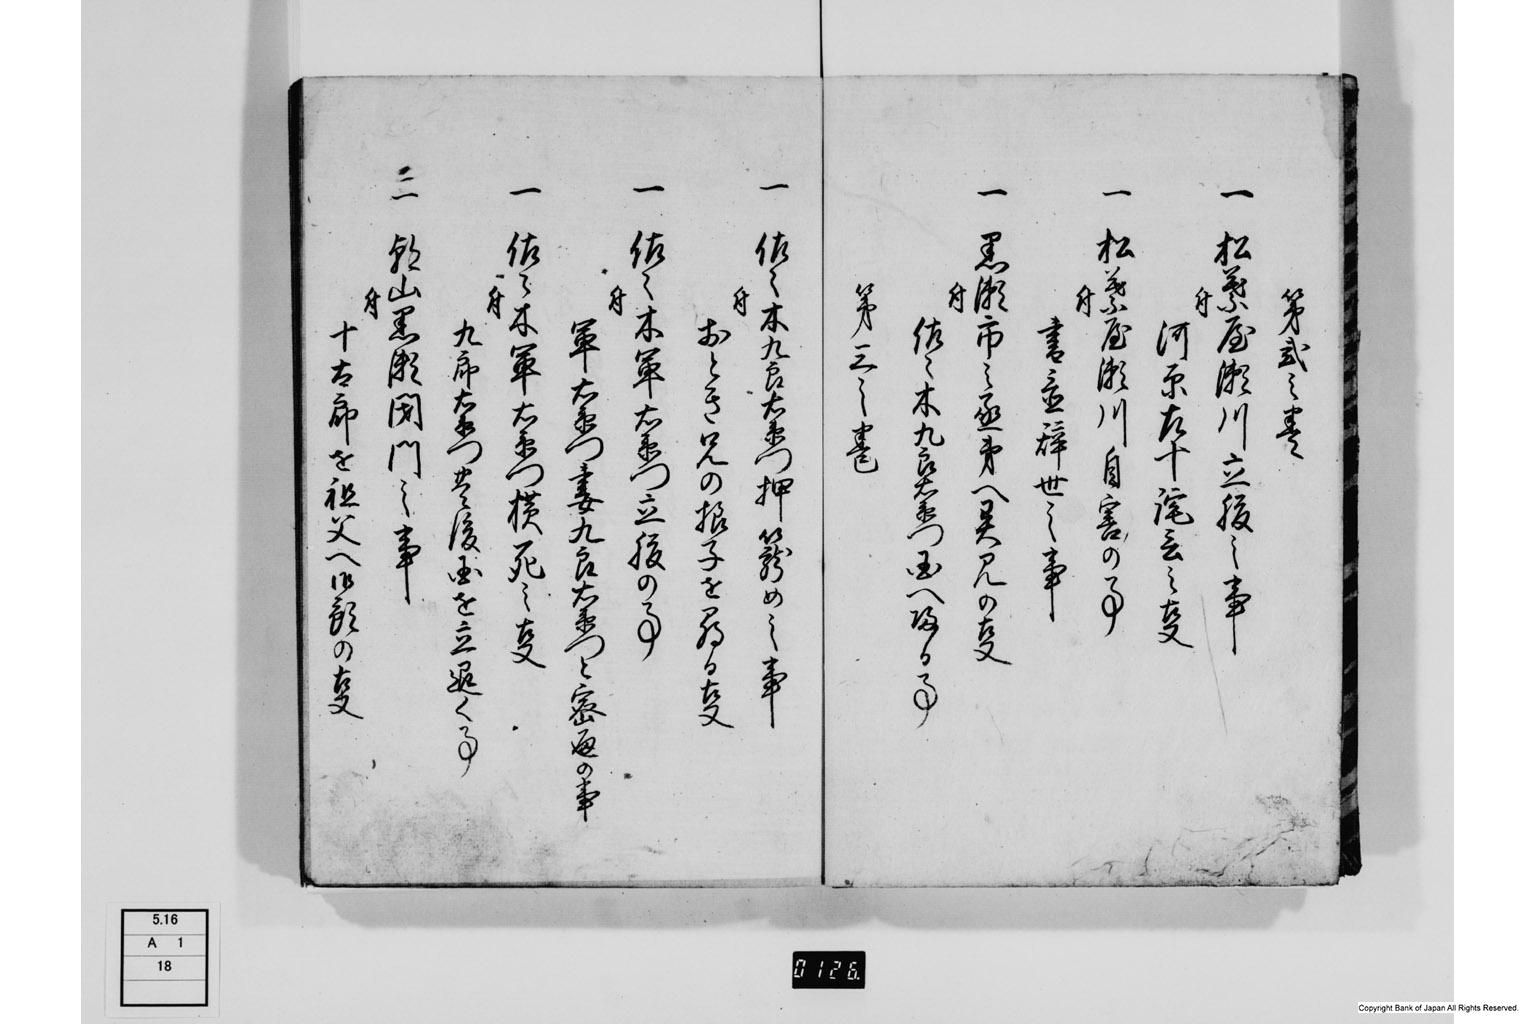 第弐之巻
一 松葉屋瀬川立腹之事
付 河原左十詫言之叓
一 松葉屋瀬川自害の事
書置辞世之事
一 黒瀬市之丞弟へ異見の叓
付 佐々木九郎右衛門国へ帰る事
第三之巻
一 佐々木九郎右衛門押籠め之事
付 おとき兄の様子を尋る叓
一 佐々木軍右衛門立腹の事
付 軍右衛門妻九郎右衛門と密通の事
一 佐々木軍右衛門横死之叓
付 九郎右衛門其後国を立退く事
一 郡山黒瀬閉門之事
付 十太郎を祖父へ御預の叓
5.16
A 1
18
0126.
Copyright Bank of Japan All Rights Reserved.